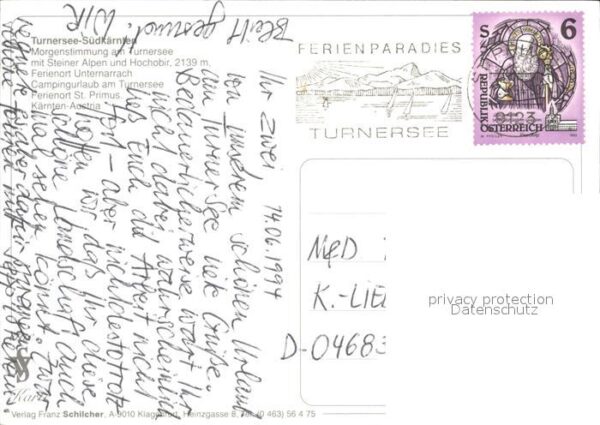 Turnersee-Südkärnten
Morgenstimmung am Turnersee
mit Steiner Alpen und Hochobir, 2139 m.
Ferienort Unternarrach
Campingurlaub am Turnersee
Ferienort St. Primus.
Kärnten-Austria
FERIENPARADIES
TURNERSEE
S 6
REPUBLIK
ÖSTERREICH
9123
14.06.1994
Ihr zwei
von unserem schönen Urlaub
am Turnersee viele Grüße.
Bedauerlicherweise wart Ihr
nicht dabei wahrscheinlich
ließ Euch die Arbeit nicht
fort – aber nichtsdestotrotz
hoffen wir das Ihr diese
schöne Landschaft auch
mal sehen könnt.
Bleibt gesund. WIR
M&D
K.-LIE
D-04683
privacy protection
Datenschutz
Karte
Verlag Franz Schilcher, A-9010 Klagenfurt, Heinzgasse 8, Tel. (0 463) 56 4 75